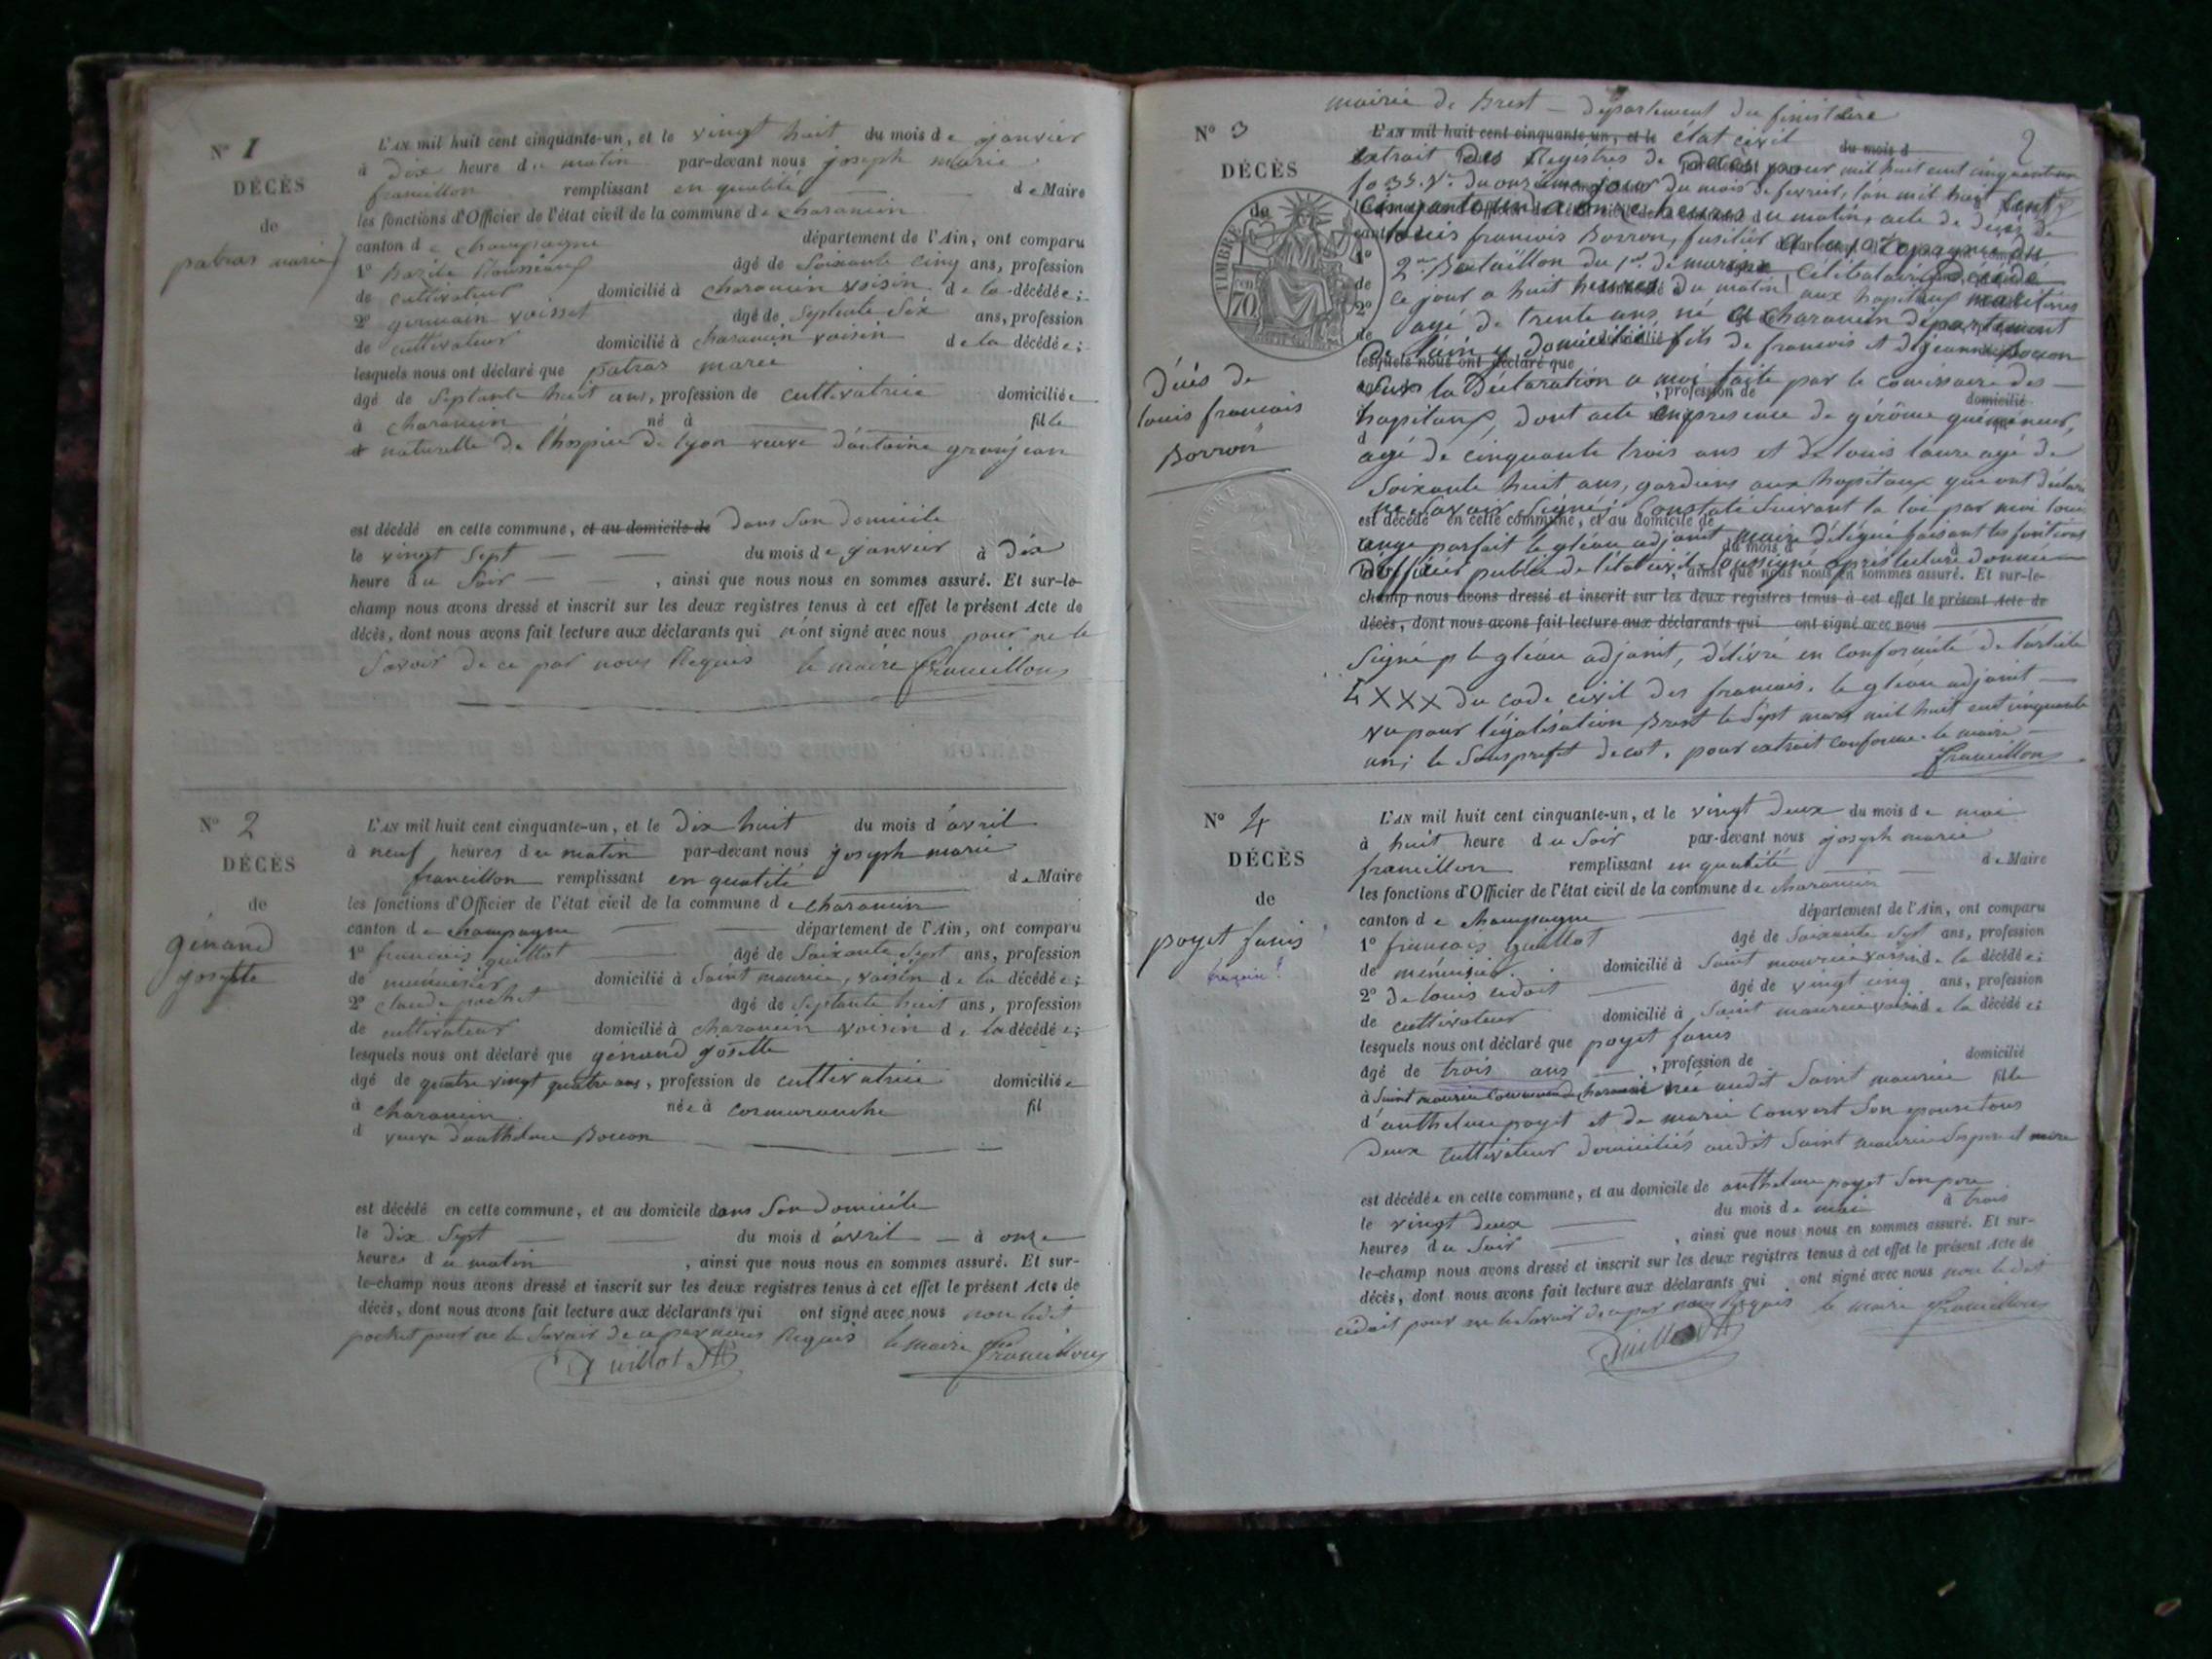 N° 1
DÉCÈS
de
patras marie
L'AN mil huit cent cinquante-un, et le vingt huit du mois de janvier
à dix heure du matin par-devant nous joseph marie
francillon remplissant en qualité de Maire
les fonctions d'Officier de l'état civil de la commune de charancin
canton de champagne département de l'Ain, ont comparu
1° bazile âgé de soixante cinq ans, profession
de cultivateur domicilié à charancin voisin de la décédée;
2° germain voisset âgé de septante six ans, profession
de cultivateur domicilié à charancin voisin de la décédée;
lesquels nous ont déclaré que patras marie
âgé de septante huit ans, profession de cultivatrice domiciliée
à charancin né à fille
naturelle de l'hospice de lyon veuve d'antoine granjean
est décédé en cette commune, et au domicile de dans son domicile
le vingt sept du mois de janvier à dix
heure du soir, ainsi que nous nous en sommes assuré. Et sur-le-
champ nous avons dressé et inscrit sur les deux registres tenus à cet effet le présent Acte de
décès, dont nous avons fait lecture aux déclarants qui n'ont signé avec nous pour ne le
savoir de ce par nous Requis le maire francillon
N° 2
DÉCÈS
de
génand
josephte
L'AN mil huit cent cinquante-un, et le dix huit du mois d'avril
à neuf heures du matin par-devant nous joseph marie
francillon remplissant en qualité de Maire
les fonctions d'Officier de l'état civil de la commune de charancin
canton de champagne département de l'Ain, ont comparu
1° francois guillot âgé de soixante sept ans, profession
de menuisier domicilié à saint maurice, voisin de la décédée;
2° claude pochet âgé de septante huit ans, profession
de cultivateur domicilié à charancin voisin de la décédée;
lesquels nous ont déclaré que génand josette
âgé de quatre vingt quatre ans, profession de cultivatrice domiciliée
à charancin née à cormaranche fil
d veuve d'anthelme Bocon
est décédé en cette commune, et au domicile dans son domicile
le dix sept du mois d'avril à onze
heures du matin, ainsi que nous nous en sommes assuré. Et sur-
le-champ nous avons dressé et inscrit sur les deux registres tenus à cet effet le présent Acte de
décès, dont nous avons fait lecture aux déclarants qui ont signé avec nous non ledit
pochet pour ne le savoir de ce par nous Requis le maire francillon
Guillot
mairie de brest – département du finistère
2
N° 3
DÉCÈS
TIMBRE
70
décès de
louis francois
Borron
L'AN mil huit cent cinquante-un, et le état civil du mois d
extrait des Registres de décès pour mil huit cent cinquante un
fo 35. Vo. du onzième jour du mois de fevrier, l'an mil huit cent
cinquante un à onze heures du matin, acte de décès de
louis francois Borron, fusilier à la compagnie du
2me Bataillon du 1er de marine, célibataire décédé
ce jour a huit heures du matin aux hopitaux maritimes
agé de trente ans, né à charancin département
de l'ain y domicilié fils de francois et de jeanne
lesquels nous ont déclaré que
sur la déclaration a moi faite par le comissaire des
hopitaux, dont acte en presence de gérôme quéméneur,
agé de cinquante trois ans et de louis laure agé de
soixante huit ans, gardiens aux hopitaux qui ont déclaré
ne savoir signer, constaté suivant la loi par moi louis
ange parfait le gléau adjoint maire délégué faisant les fonctions
d'officier public de l'état civil soussigné après lecture donnée
, ainsi que nous nous en sommes assuré. Et sur-le-
champ nous avons dressé et inscrit sur les deux registres tenus à cet effet le présent Acte de
décès, dont nous avons fait lecture aux déclarants qui ont signé avec nous
signé p le gléau adjoint, délivré en conformité de l'article
LXXX du code civil des francais. le gléau adjoint
vu pour légalisation Brest le sept mars mil huit cent cinquante
un; le souspréfet decot. pour extrait conforme le maire
francillon
N° 4
DÉCÈS
de
poyet fanis
L'AN mil huit cent cinquante-un, et le vingt deux du mois de mai
à huit heure du soir par-devant nous joseph marie
francillon remplissant en qualité de Maire
les fonctions d'Officier de l'état civil de la commune de charancin
canton de champagne département de l'Ain, ont comparu
1° francois guillot âgé de soixante sept ans, profession
de menuisier domicilié à saint maurice voisin de la décédée;
2° de louis âgé de vingt cinq ans, profession
de cultivateur domicilié à saint maurice voisin de la décédée;
lesquels nous ont déclaré que poyet fanis
âgé de trois ans, profession de domicilié
à saint maurice commune de charancin née audit saint maurice fille
d'anthelme poyet et de marie convert son epouse tous
deux cultivateur domiciliés audit saint maurice ses pere et mere
est décédée en cette commune, et au domicile de anthelme poyet son pere
le vingt deux du mois de mai à trois
heures du soir, ainsi que nous nous en sommes assuré. Et sur-
le-champ nous avons dressé et inscrit sur les deux registres tenus à cet effet le présent Acte de
décès, dont nous avons fait lecture aux déclarants qui ont signé avec nous non ledit
pour ne le savoir de ce par nous Requis le maire francillon
Guillot